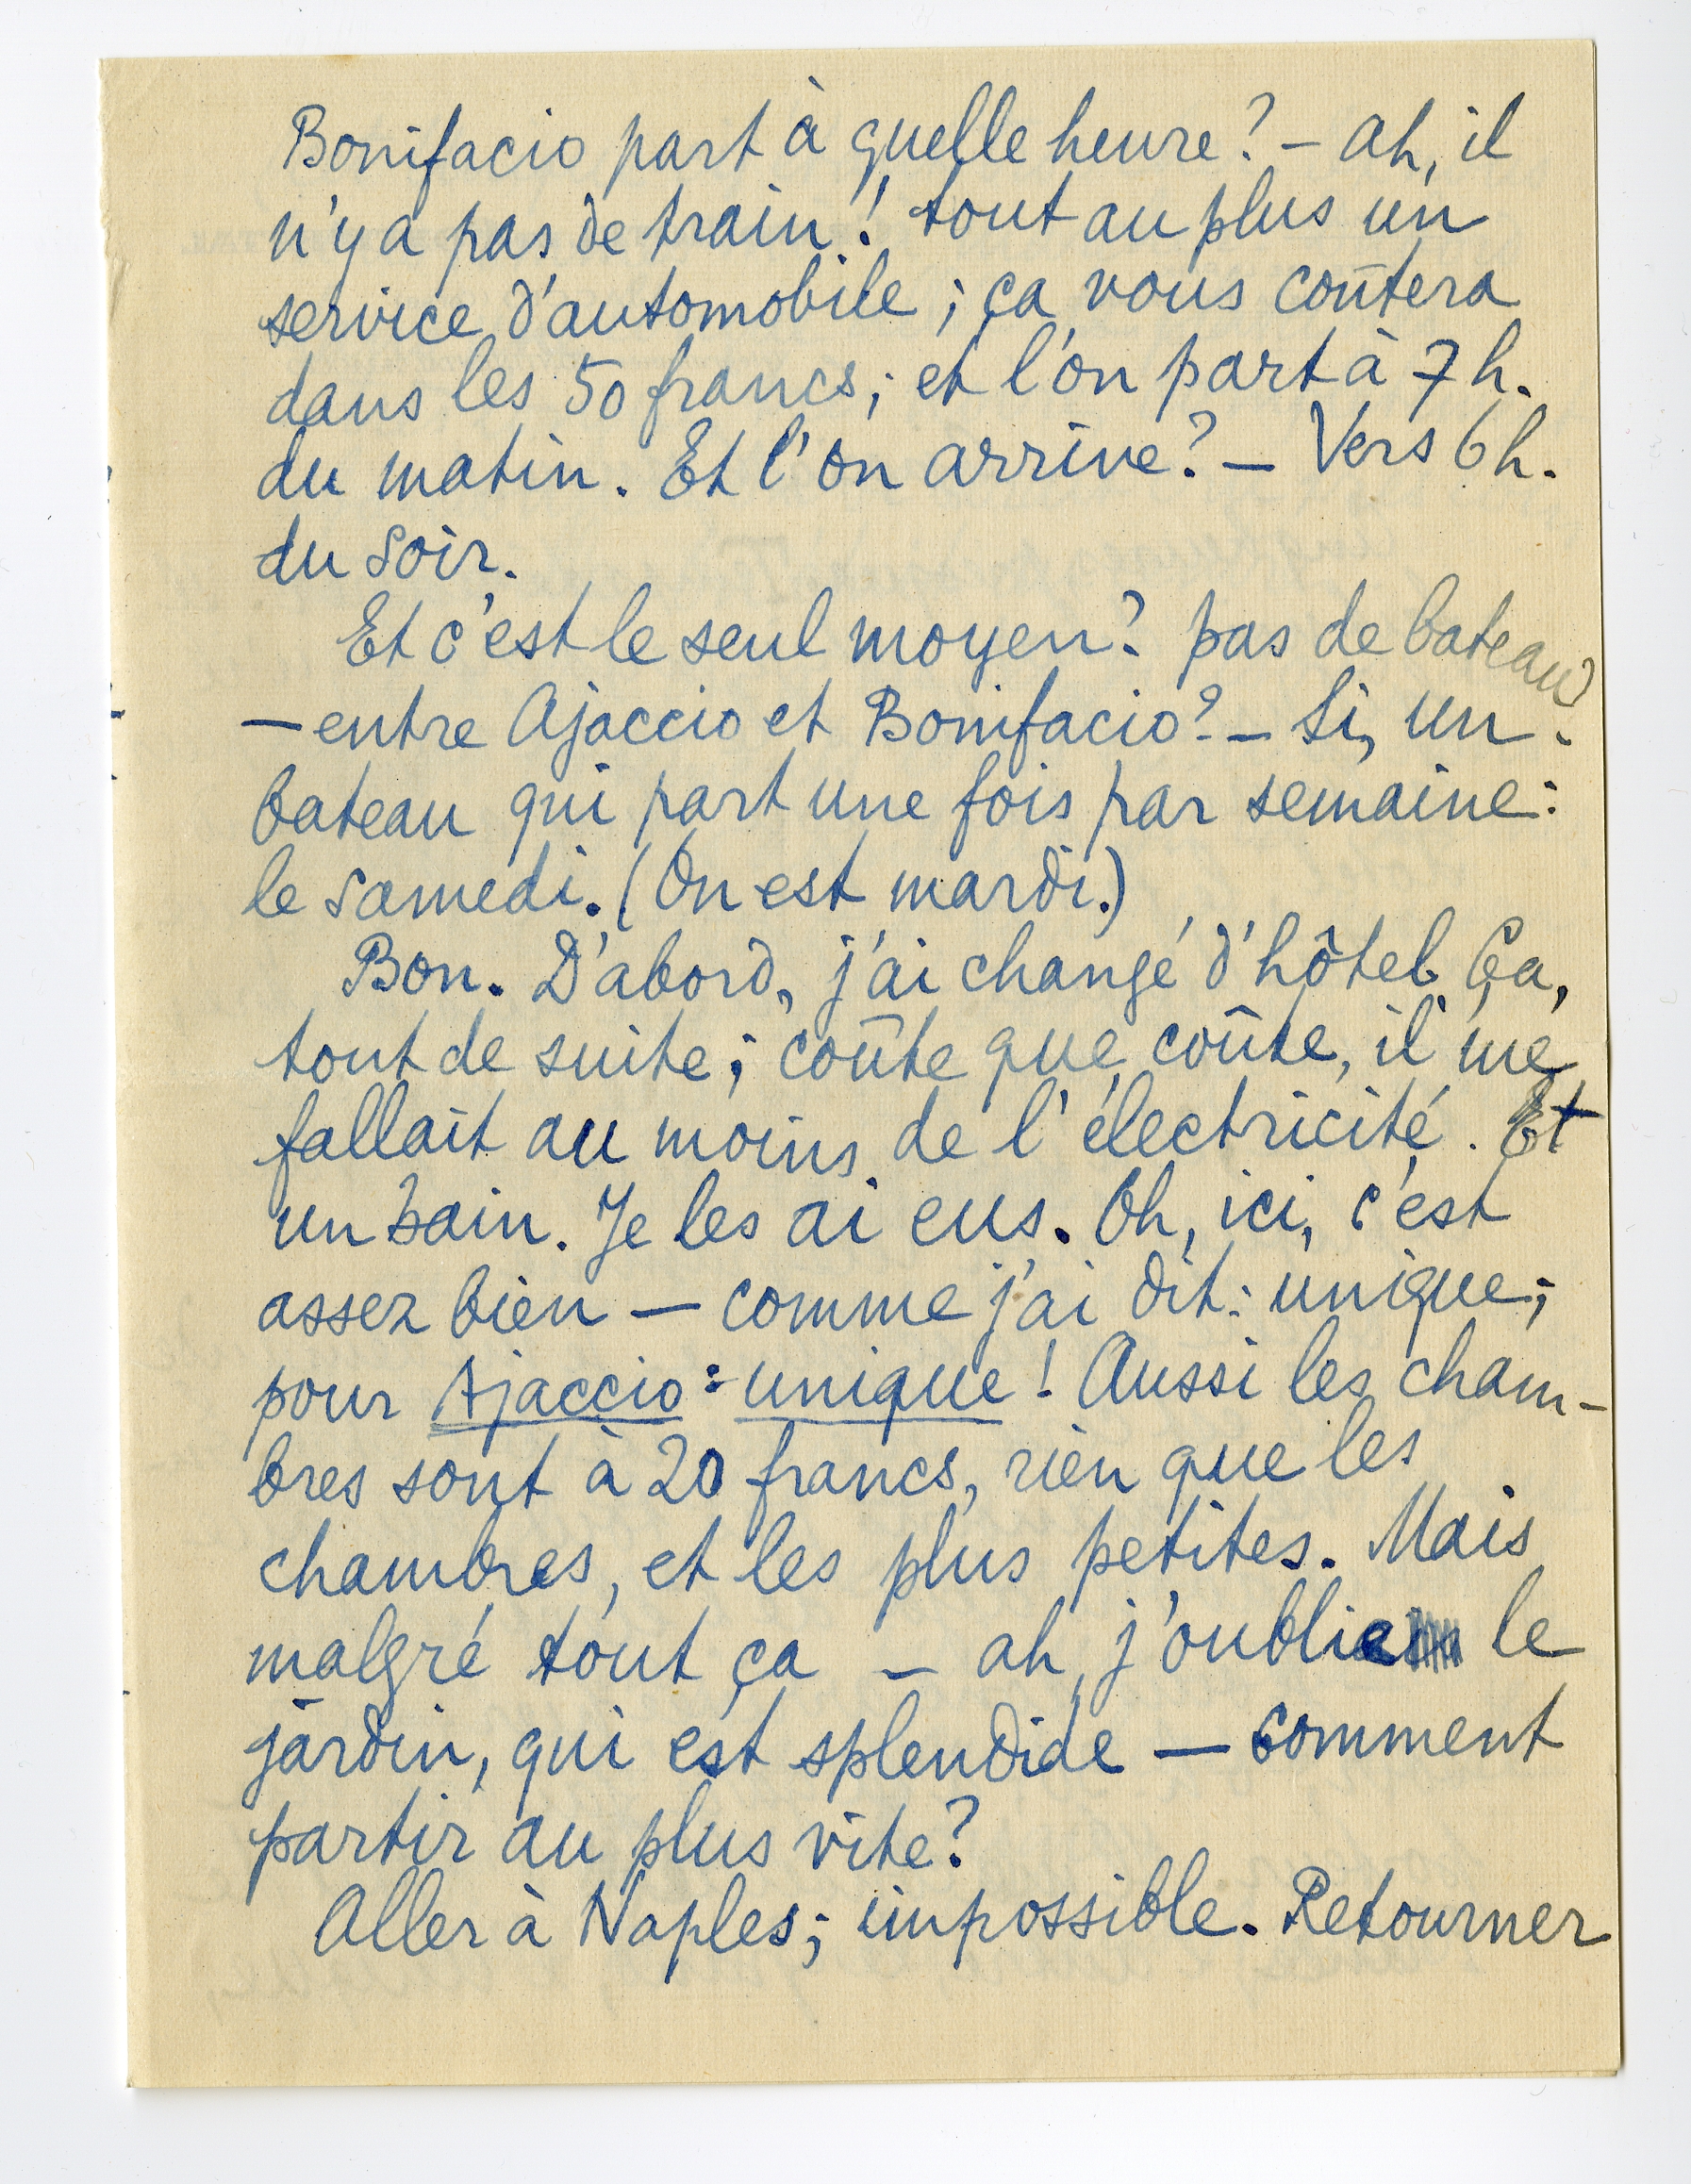 Bonifacio part à quelle heure? – ah, il
n'y a pas de train! tout au plus un
service d'automobile; ça vous coûtera
dans les 50 francs; et l'on part à 7 h.
du matin. Et l'on arrive? – Vers 6 h.
du soir.
Et c'est le seul moyen? pas de bateau
– entre Ajaccio et Bonifacio? – Si, un
bateau qui part une fois par semaine:
le samedi. (On est mardi.)
Bon. D'abord, j'ai changé d'hôtel. Ça,
tout de suite; coûte que coûte, il me
fallait au moins de l'électricité. Et
un bain. Je les ai eus. Oh, ici, c'est
assez bien — comme j'ai dit: unique;
pour Ajaccio: unique! Aussi les cham-
bres sont à 20 francs, rien que les
chambres, et les plus petites. Mais
malgré tout ça – ah, j'oublie le
jardin, qui est splendide — comment
partir au plus vite?
Aller à Naples; impossible. Retourner